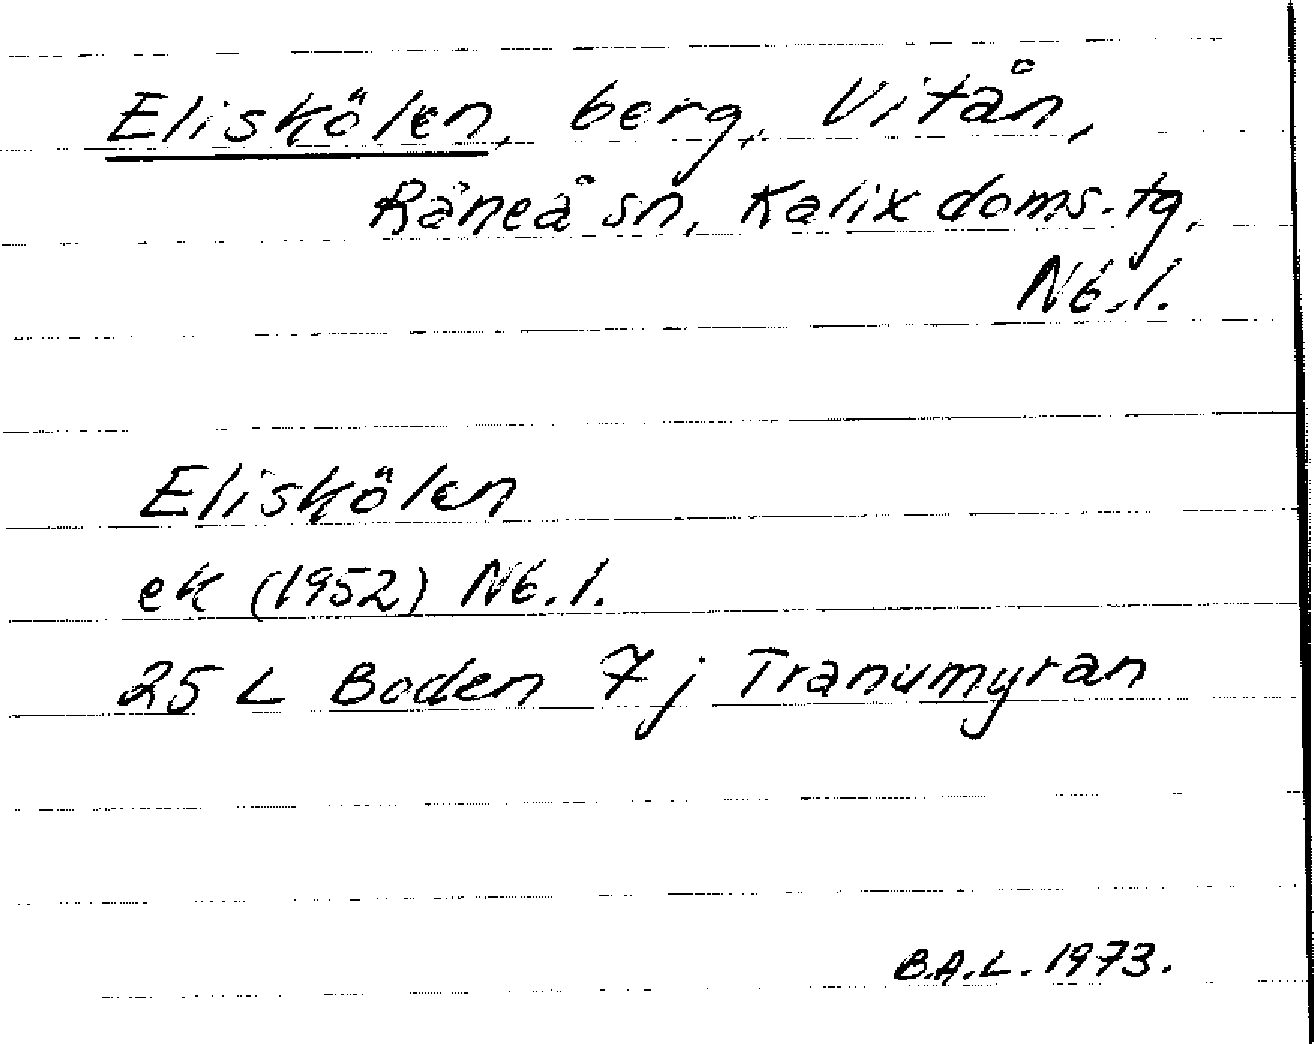 Eliskölen, berg, Vitån,
Råneå sn, Kalix doms. tg,
Nb.l.
Eliskölen
ek (1952) Nb.l.
25 L Boden 7j Tranumyran
B.A.L. 1973.